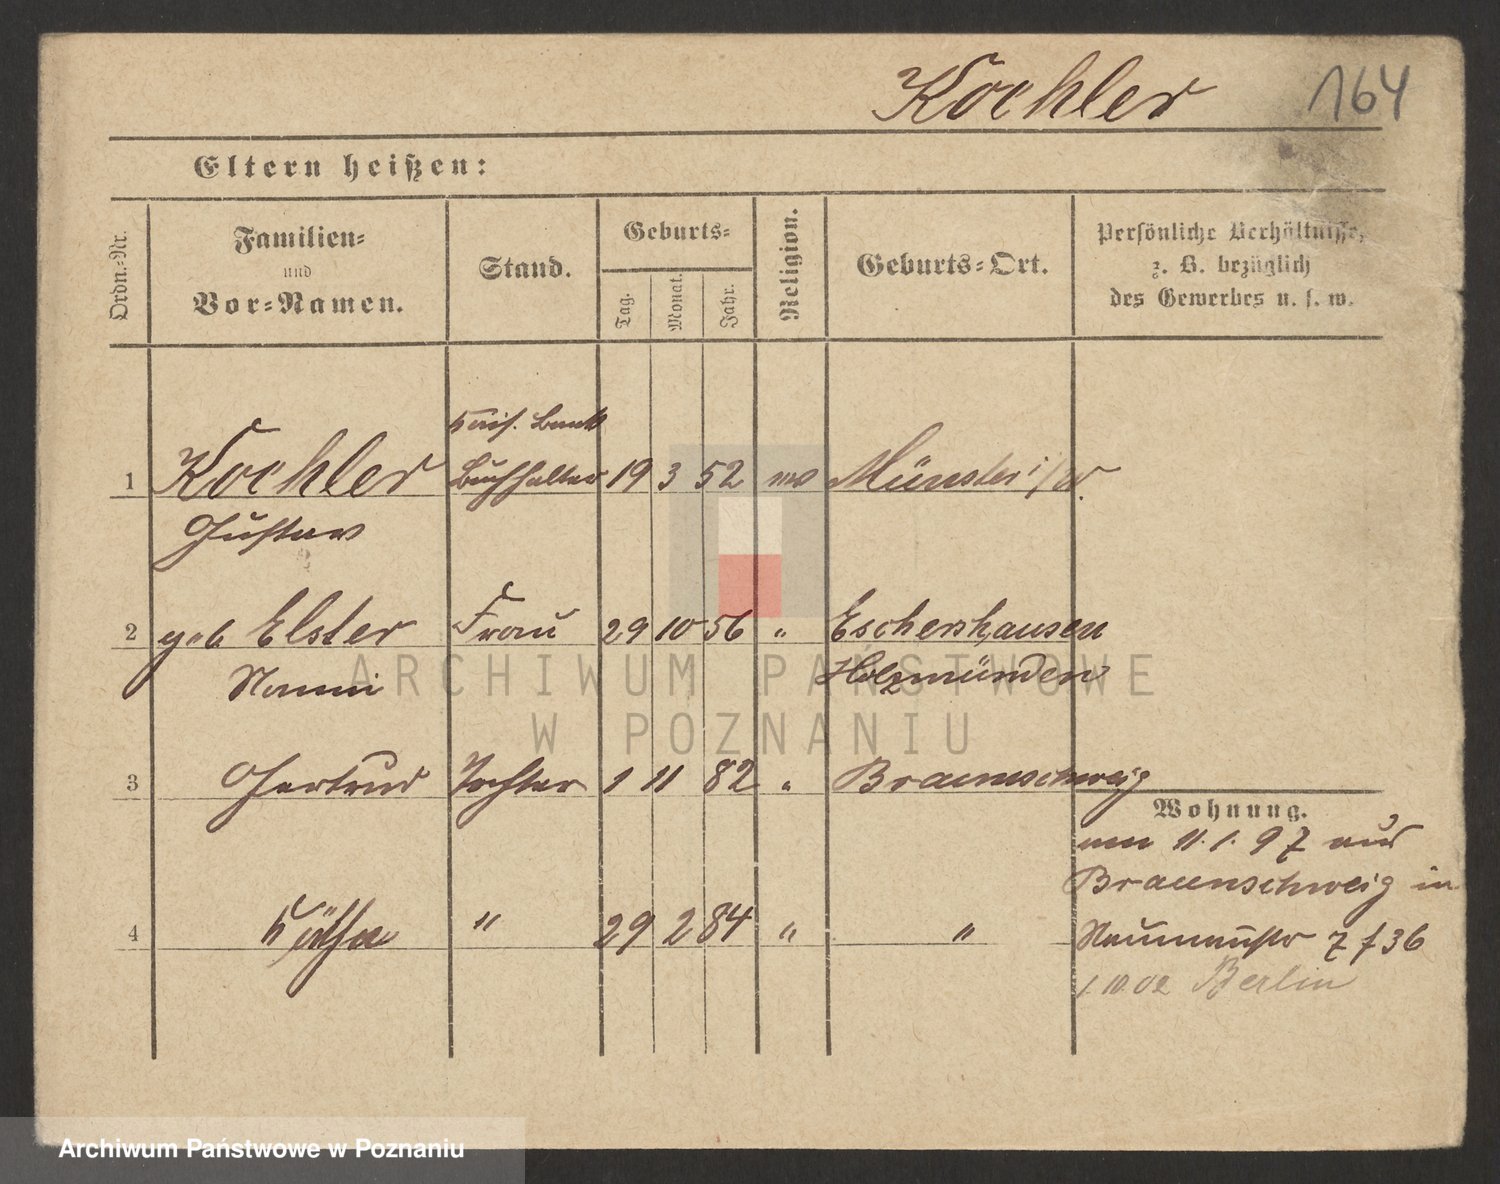 Koehler 164
Eltern heißen:
Ordn.-Nr.
Familien-
und
Vor-Namen.
Stand.
Geburts-
Tag.
Monat.
Jahr.
Religion.
Geburts-Ort.
Persönliche Verhältnisse,
z. B. bezüglich
des Gewerbes u. s. w.
Kais. Bank
1 Koehler Buchhalter 19 3 52 Münster i/W.
Gustav
2 geb Elster Frau 29 10 56 " Eschershausen
Nanni Holzmünden
3 Gertrud Tochter 1 11 82 " Braunschweig
Wohnung.
am 11. 1. 97 aus
Braunschweig in
4 Käthe " 29 2 84 " "
Naumannstr 7 f 36
1. 10. 02 Berlin
ARCHIWUM PAŃSTWOWE
W POZNANIU
Archiwum Państwowe w Poznaniu